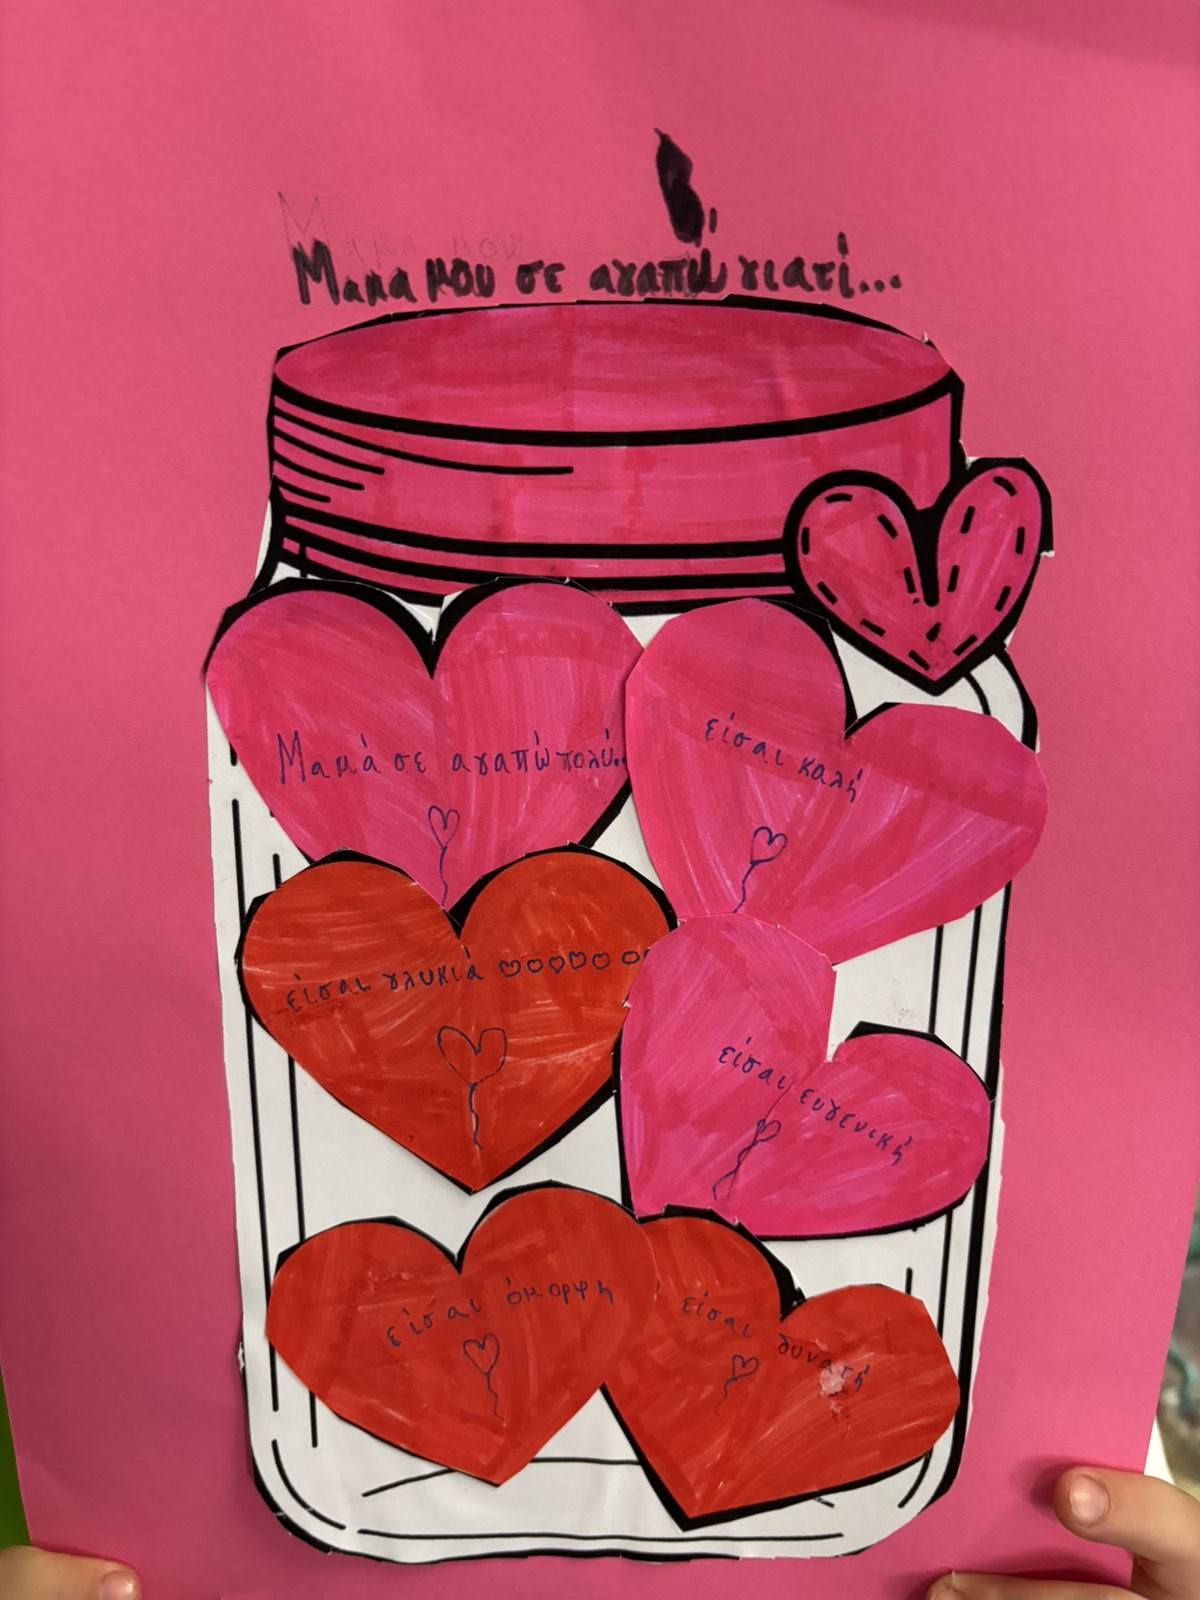 Μαμα μου
Μαμα μου σε αγαπώ γιατί...
Μαμά σε αγαπώ πολύ..
είσαι καλή
είσαι γλυκιά
είσαι ευγενική
είσαι όμορφη
είσαι δυνατή